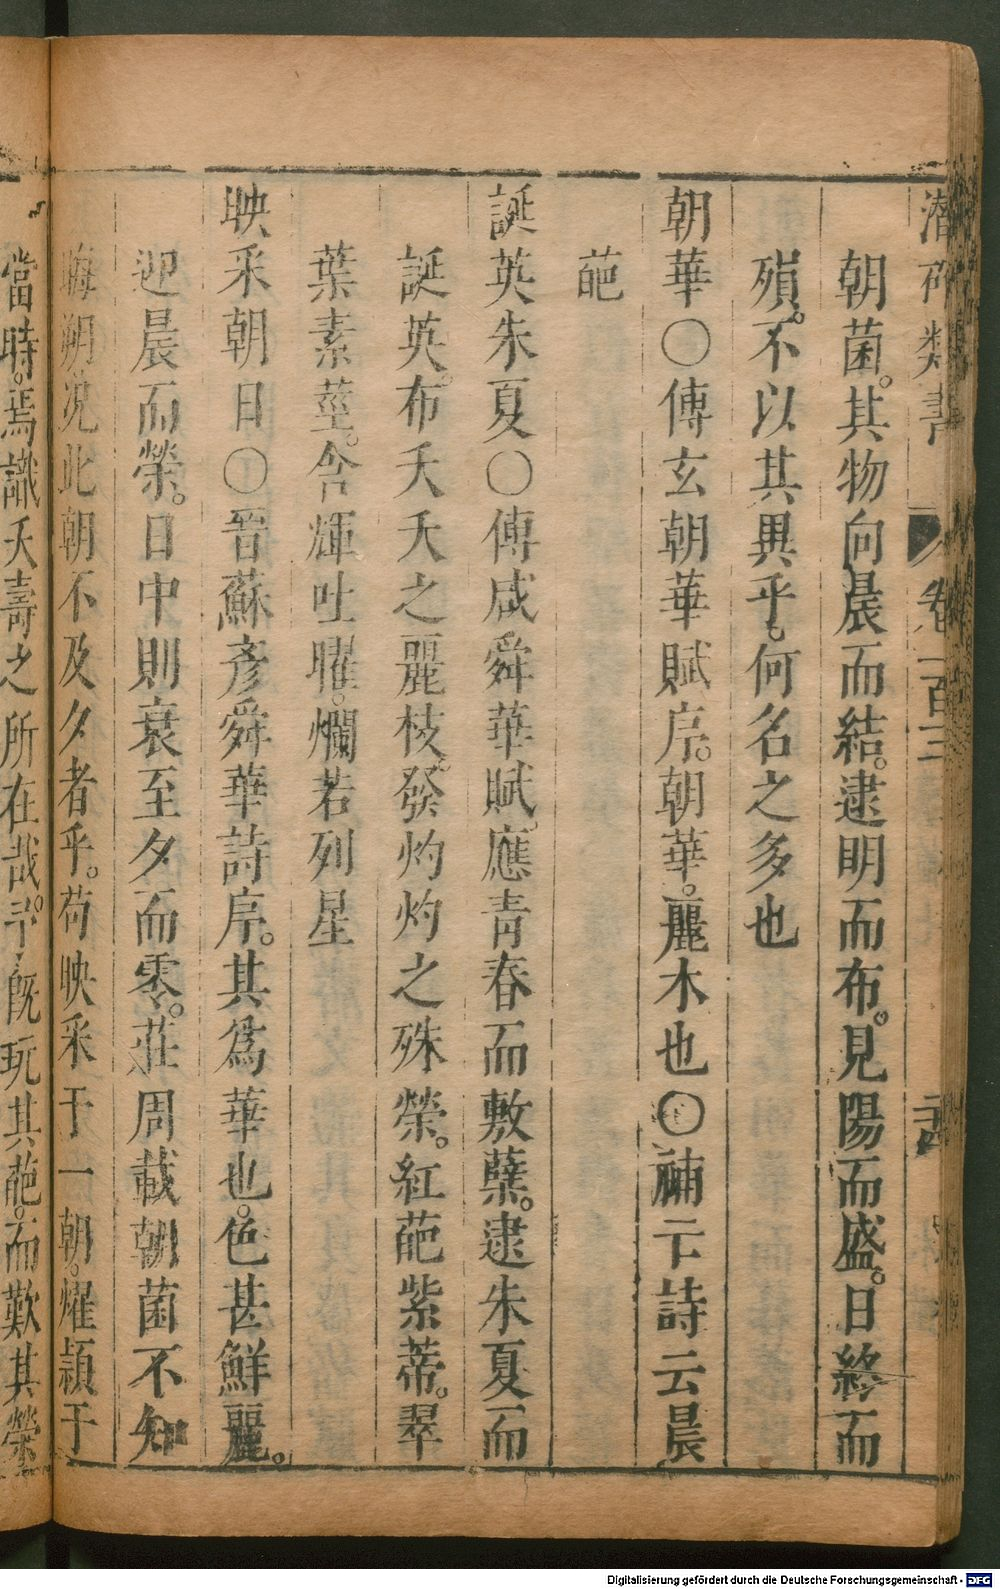 潛確類書 卷一百三
朝菌。其物向晨而結。逮明而布。見陽而盛。日終而
殞。不以其異乎。何名之多也
朝華〇傅玄朝華賦序。朝華。麗木也〇補亡詩云晨
葩
誕英朱夏〇傅咸舜華賦。應青春而敷蘖。逮朱夏而
誕英。布夭夭之麗枝。發灼灼之殊榮。紅葩紫蒂。翠
葉素莖。含輝吐曜。爛若列星
映采朝日〇晉蘇彥舜華詩序。其為華也。色甚鮮麗。
迎晨而榮。日中則衰至夕而零。莊周載朝菌不知
晦朔。況此朝不及夕者乎。苟映采于一朝。燿穎于
當時。焉識夭壽之所在哉。予既玩其葩。而歎其榮
Digitalisierung gefördert durch die Deutsche Forschungsgemeinschaft - DFG